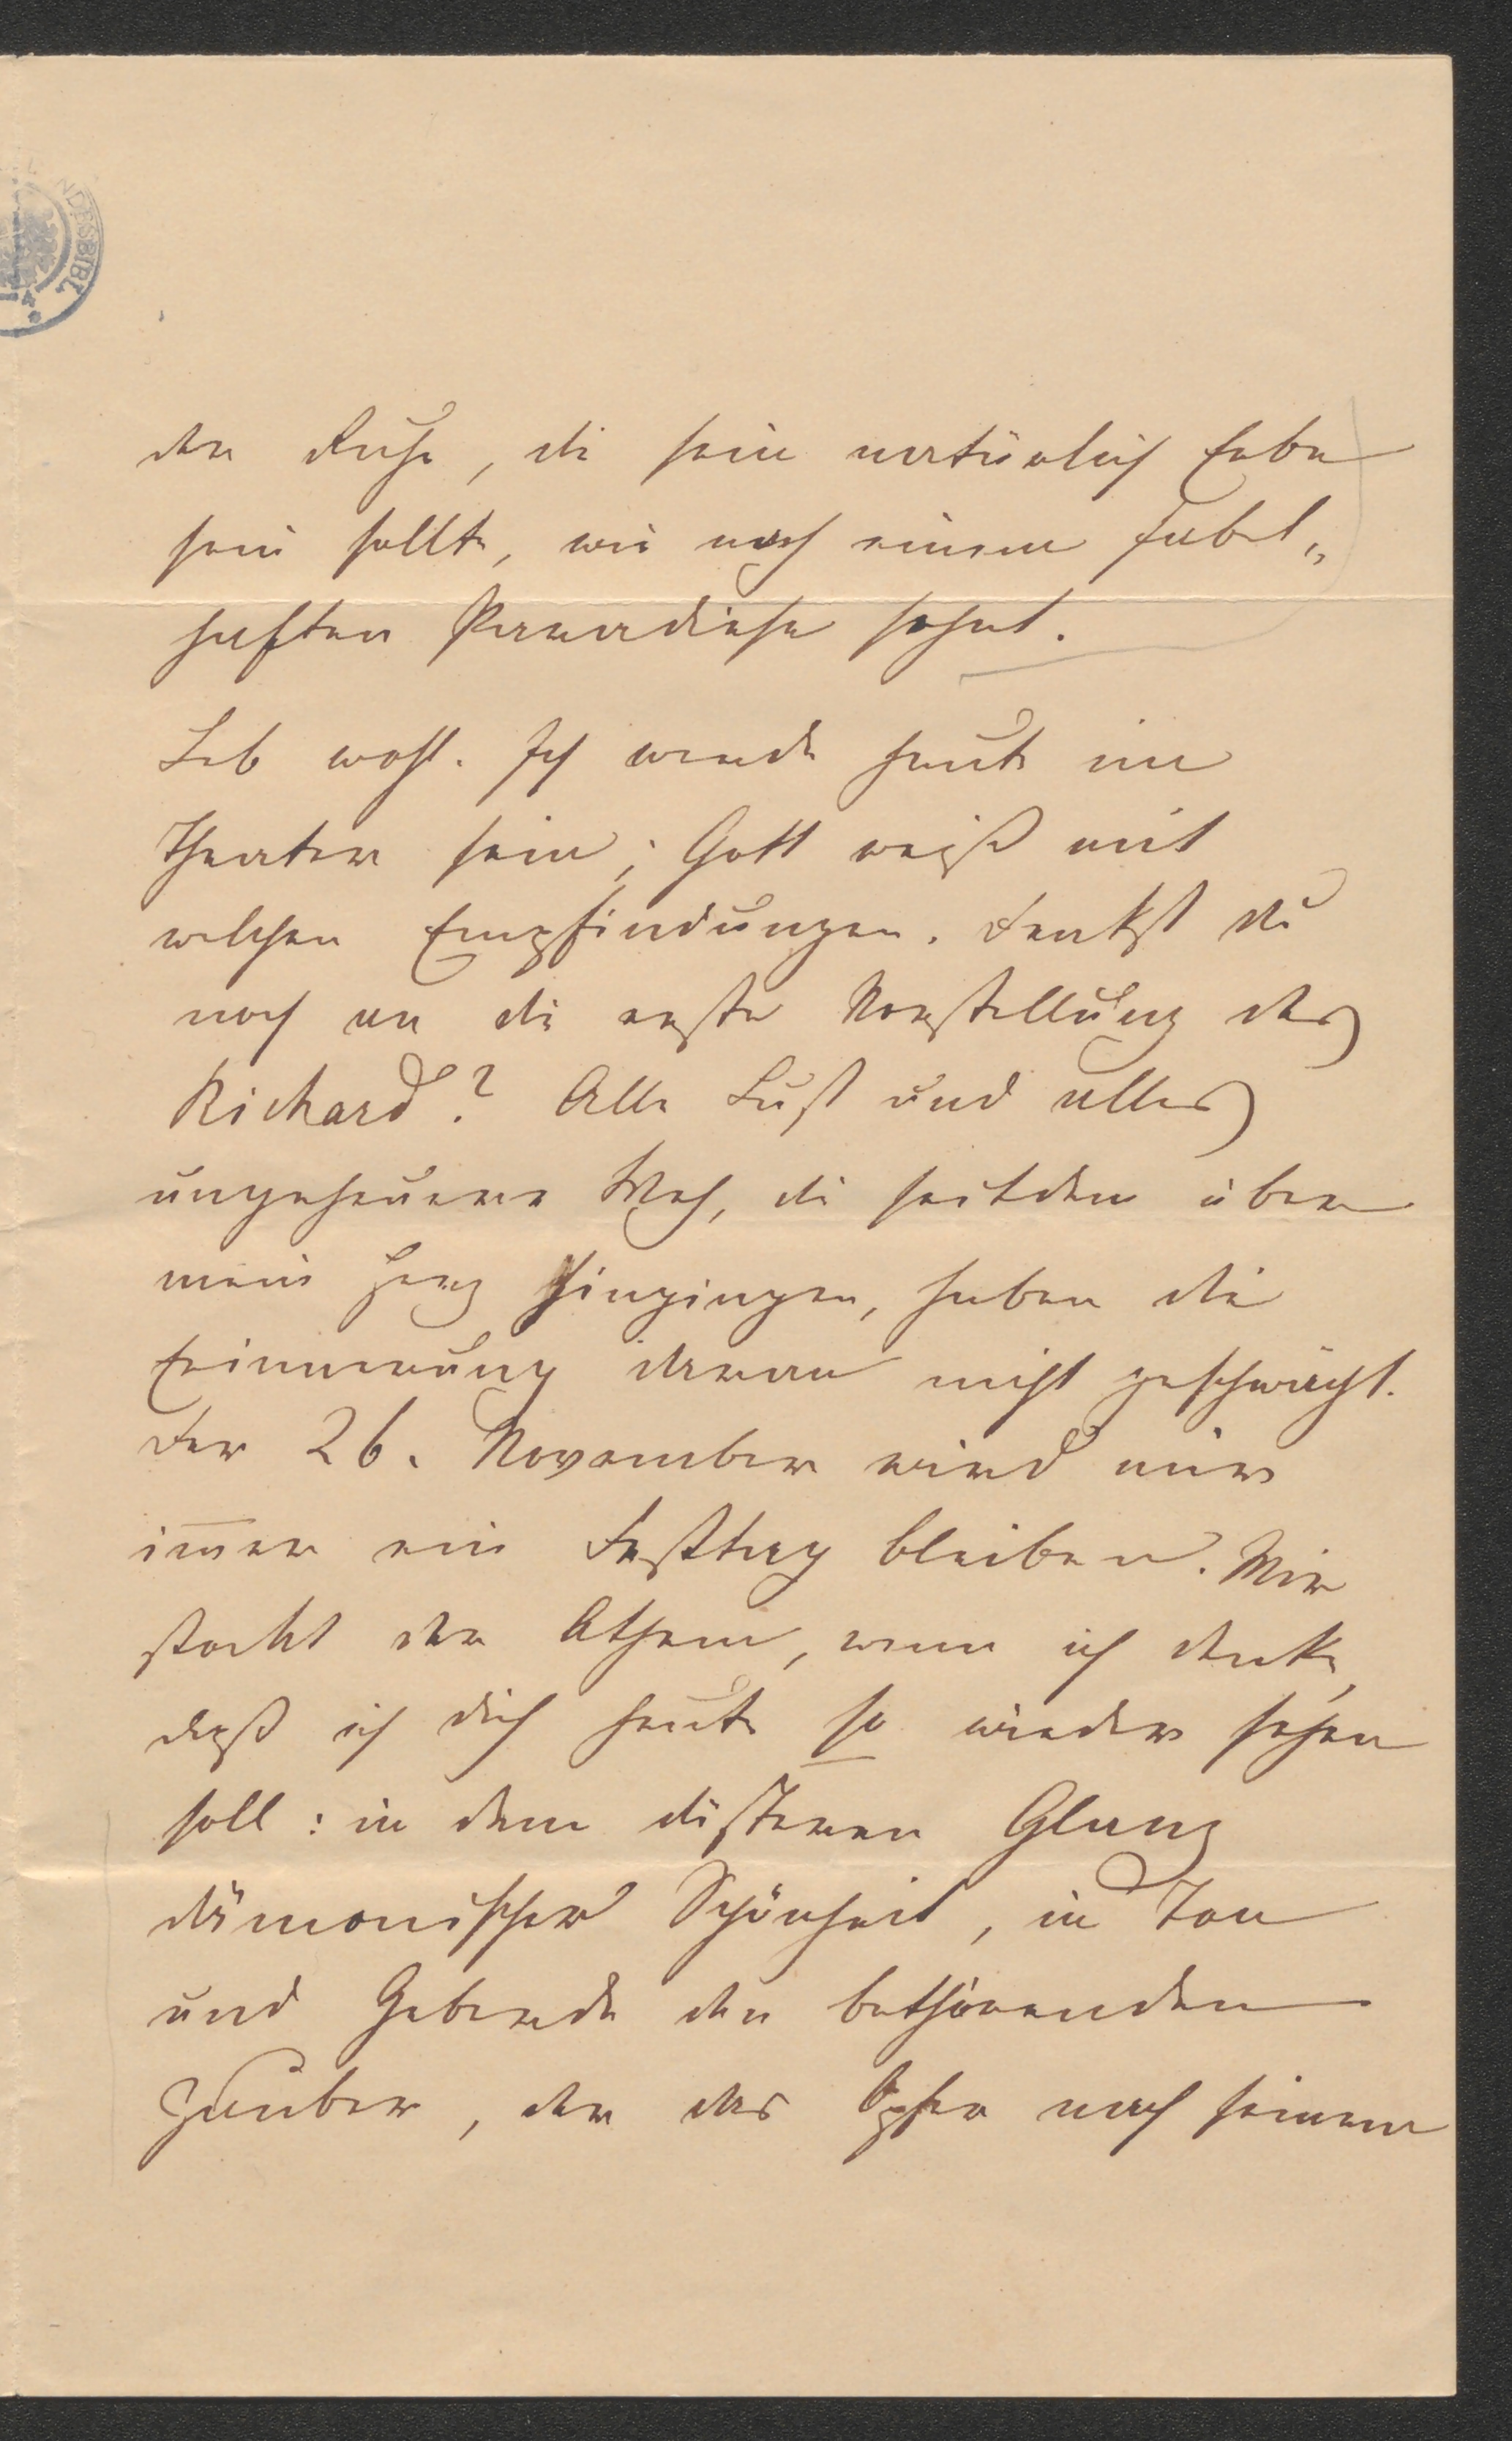 NDESBIBL.
der Ruhe, die sein natürlich Erbe
sein sollte, wie nach einem fabel„
haften Paradiese sehnt.
Leb wohl. Ich werde heute im
Theater sein; Gott weiß mit
welchen Empfindungen. Denkst du
noch an die erste Vorstellung des
Richard? Alle Lust und alles
ungeheuere Weh, die seitdem über
mein Herz hingingen, haben die
Erinnerung daran nicht geschwächt.
Der 26. November wird mir
im̅er ein Festtag bleiben. Mir
stockt der Athem, wenn ich denke,
daß ich dich heute so wieder sehen
soll: in dem düsteren Glanz
dämonischer Schönheit, in Ton
und Geberde den bethörenden
Zauber, der das Opfer nach seinem